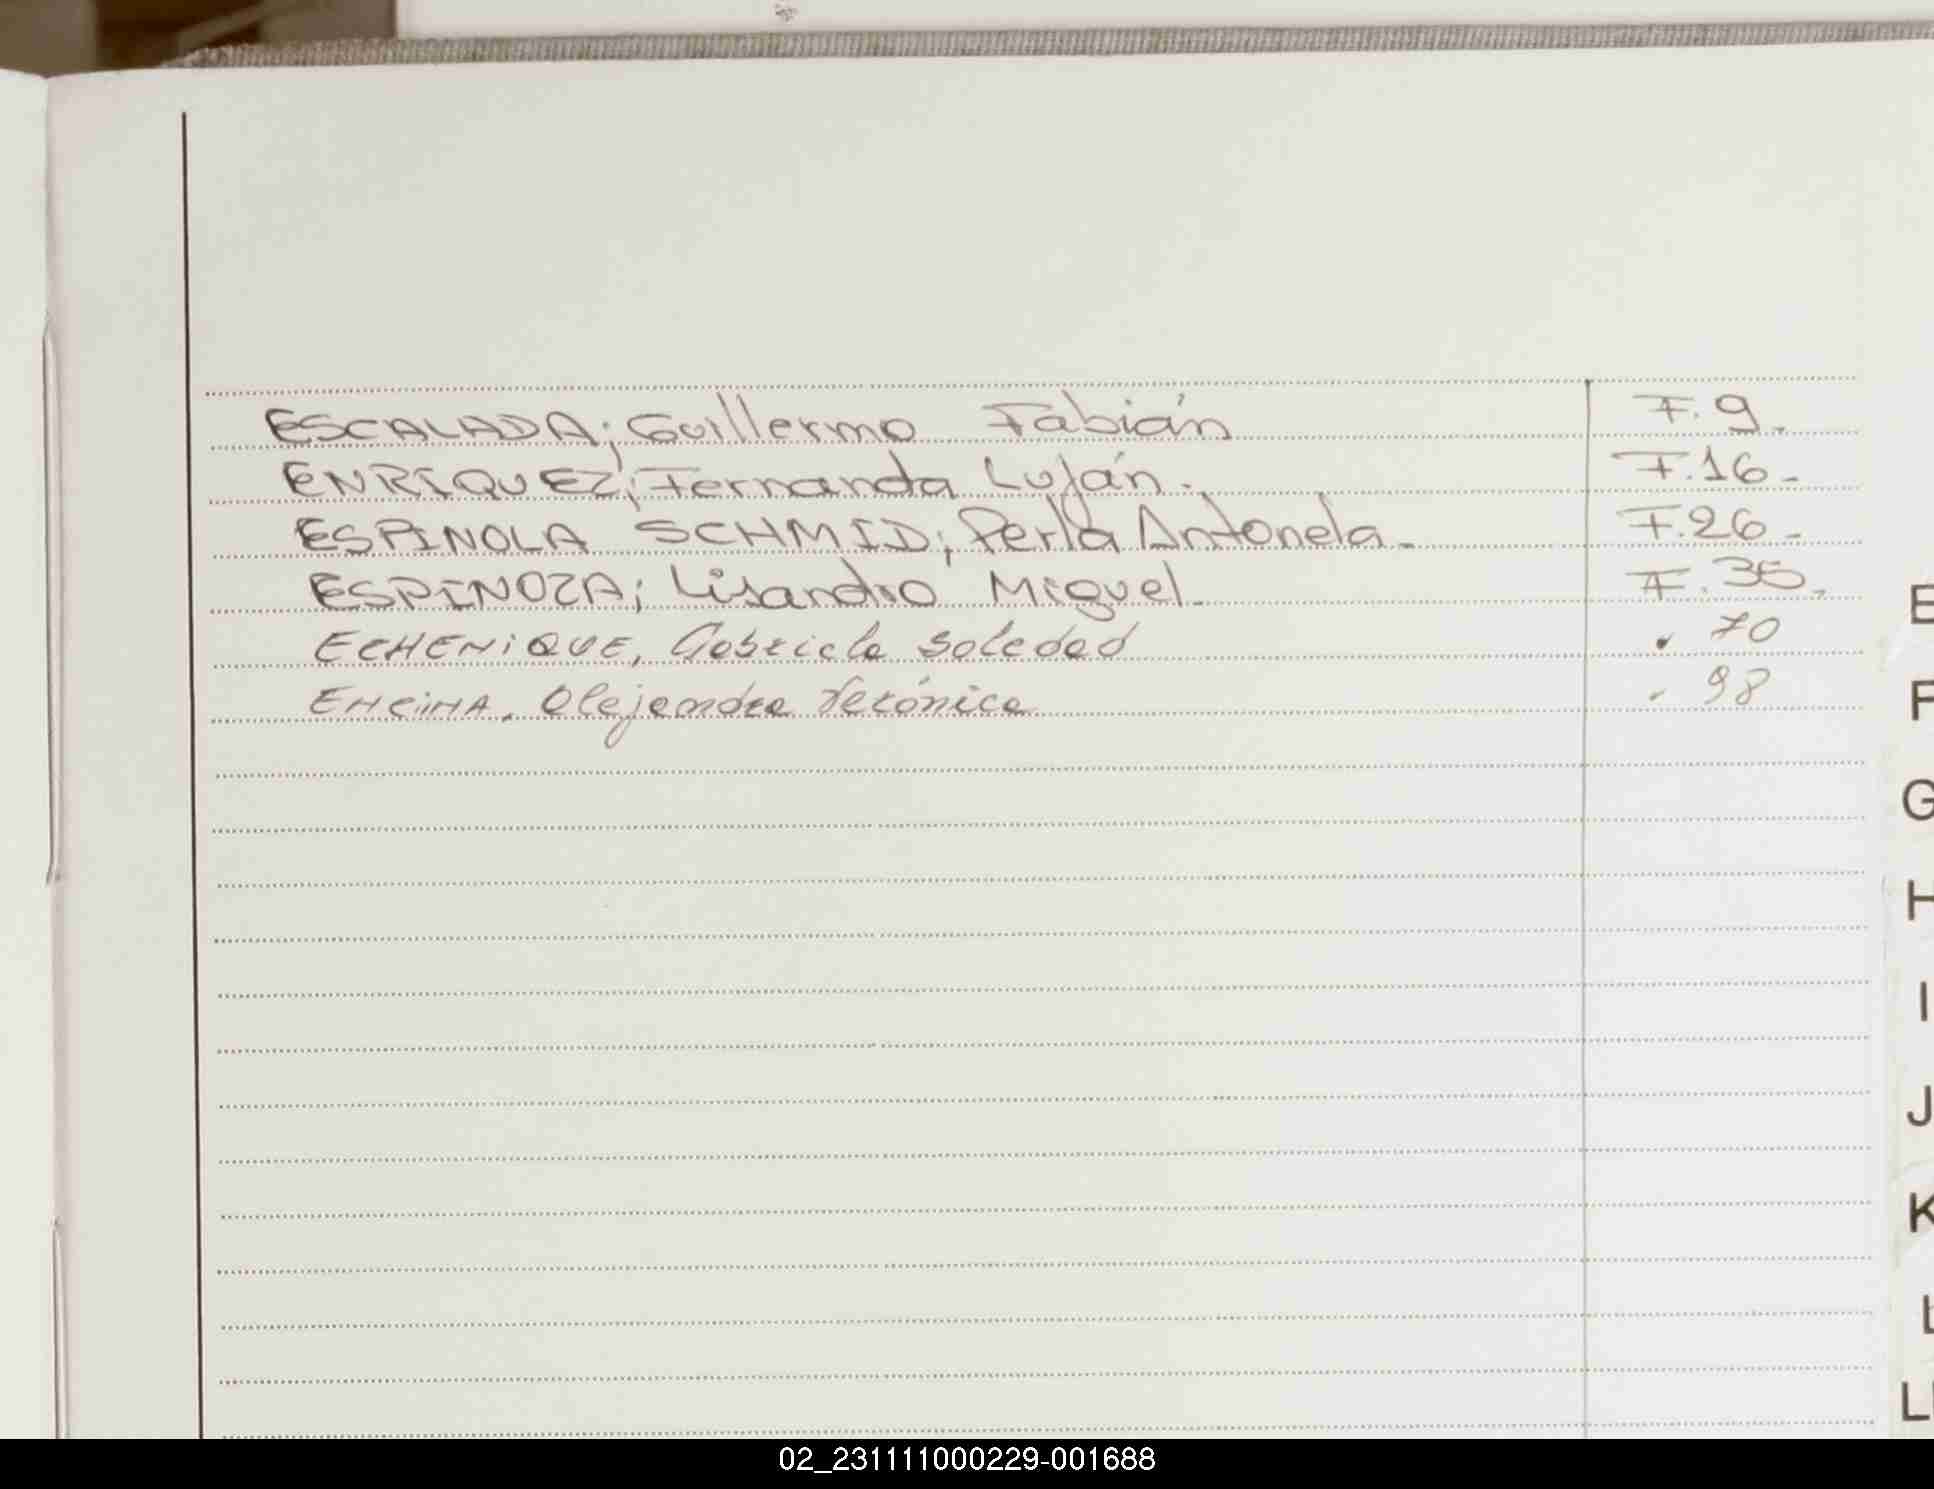 ESCALADA; Guillermo Fabián F. 9.
ENRIQUEZ; Fernanda Luján. F. 16-
ESPINOLA SCHMID; Perla Antonela. F. 26-
ESPINOZA; Lisandro Miguel. F. 35.
ECHENIQUE, Gabriela Soledad . 70
ENCINA, Alejandra Verónica . 98
E
F
G
H
I
J
K
L
LL
02_231111000229-001688